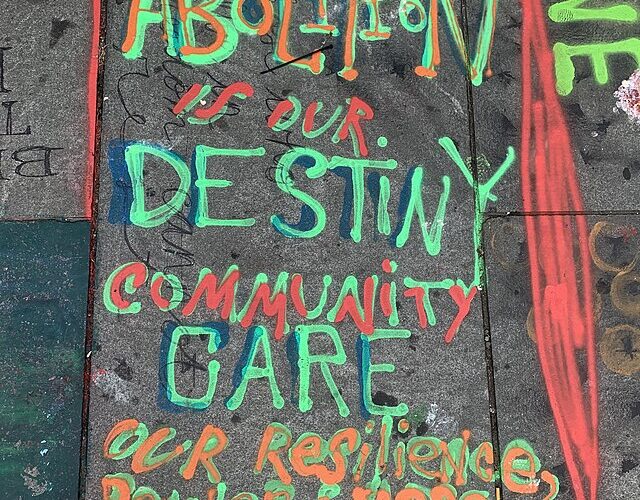 ABOLITION
is OUR
DESTiNY
COMMUNiTY
CARE
OUR Resilience,